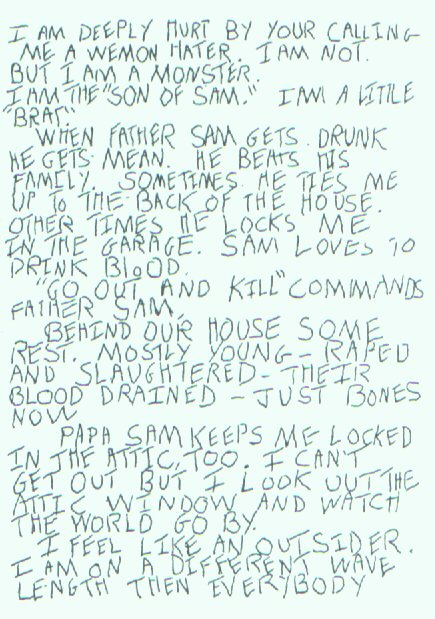 I AM DEEPLY HURT BY YOUR CALLING
ME A WEMON HATER. I AM NOT.
BUT I AM A MONSTER.
I AM THE "SON OF SAM." I AM A LITTLE
"BRAT."
WHEN FATHER SAM GETS DRUNK
HE GETS MEAN. HE BEATS HIS
FAMILY. SOMETIMES HE TIES ME
UP TO THE BACK OF THE HOUSE.
OTHER TIMES HE LOCKS ME
IN THE GARAGE. SAM LOVES TO
DRINK BLOOD.
"GO OUT AND KILL" COMMANDS
FATHER SAM.
BEHIND OUR HOUSE SOME
REST. MOSTLY YOUNG - RAPED
AND SLAUGHTERED - THEIR
BLOOD DRAINED - JUST BONES
NOW
PAPA SAM KEEPS ME LOCKED
IN THE ATTIC, TOO. I CAN'T
GET OUT BUT I LOOK OUT THE
ATTIC WINDOW AND WATCH
THE WORLD GO BY.
I FEEL LIKE AN OUTSIDER.
I AM ON A DIFFERENT WAVE
LENGTH THEN EVERYBODY